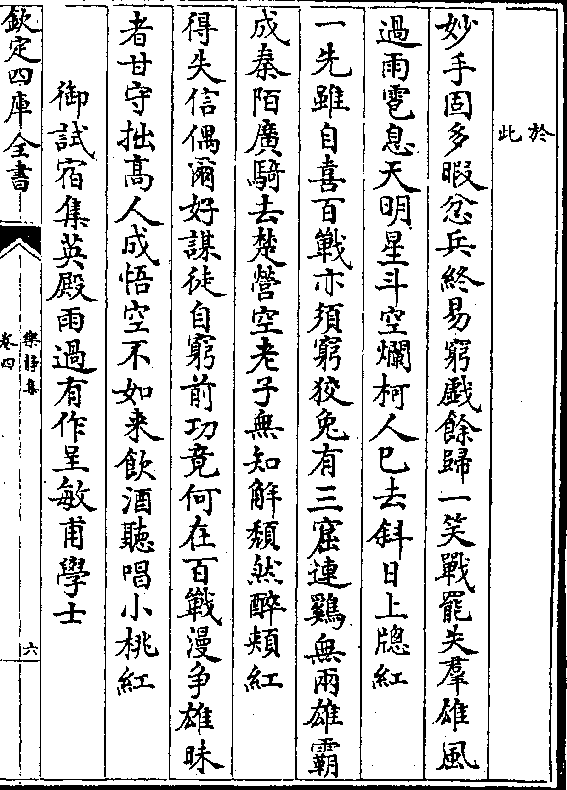 於
此
妙手固多暇忿兵終易窮戲餘歸一笑戰罷失羣雄風
過雨雹息天明星斗空爛柯人已去斜日上牕紅
一先雖自喜百戰亦須窮狡兔有三窟連鷄無兩雄霸
成秦陌廣騎去楚營空老子無知解頹然醉頰紅
得失信偶爾好謀徒自窮前功竟何在百戰漫争雄昧
者甘守拙高人成悟空不如来飲酒聽唱小桃紅
御試宿集英殿雨過有作呈敏甫學士
欽定四庫全書
樂靜集
卷四
六